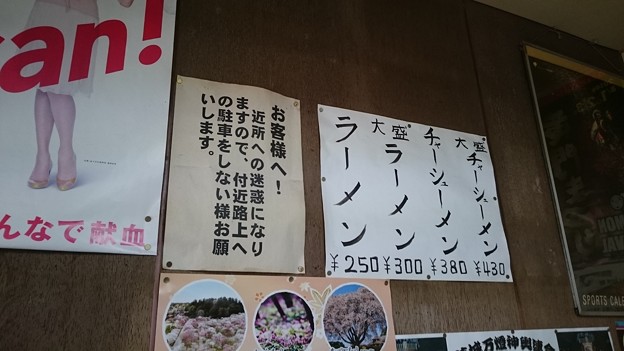 an!
んなで献血
お客様へ!
近所への迷惑になり
ますので、付近路上へ
の駐車をしない様お願
いします。
大盛チャーシューメン
¥430
チャーシューメン
¥380
大盛ラーメン
¥300
ラーメン
¥250
SPORTS CALE